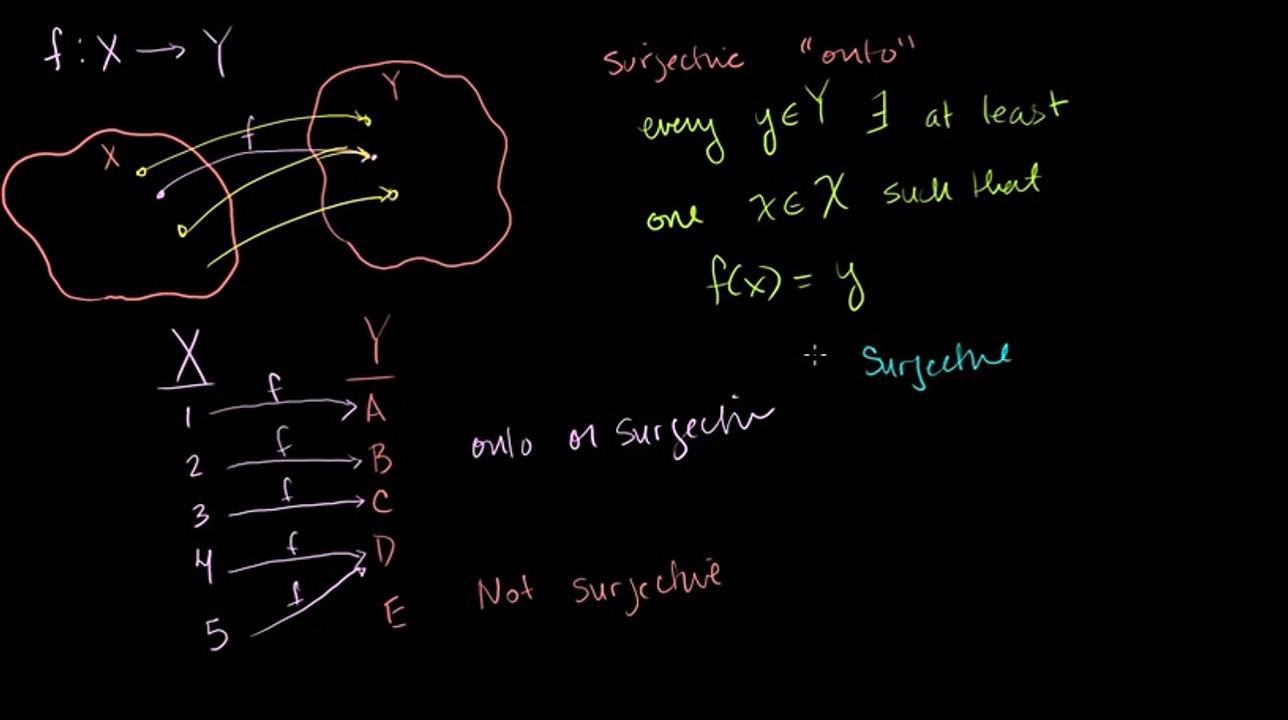 f : X → Y
surjective "onto"
every y ∈ Y ∃ at least
one x ∈ X such that
f(x) = y
Surjective
X
f
Y
X Y
1 f A
2 f B
3 f C
4 f D
5 f E
onto or surjective
Not surjective